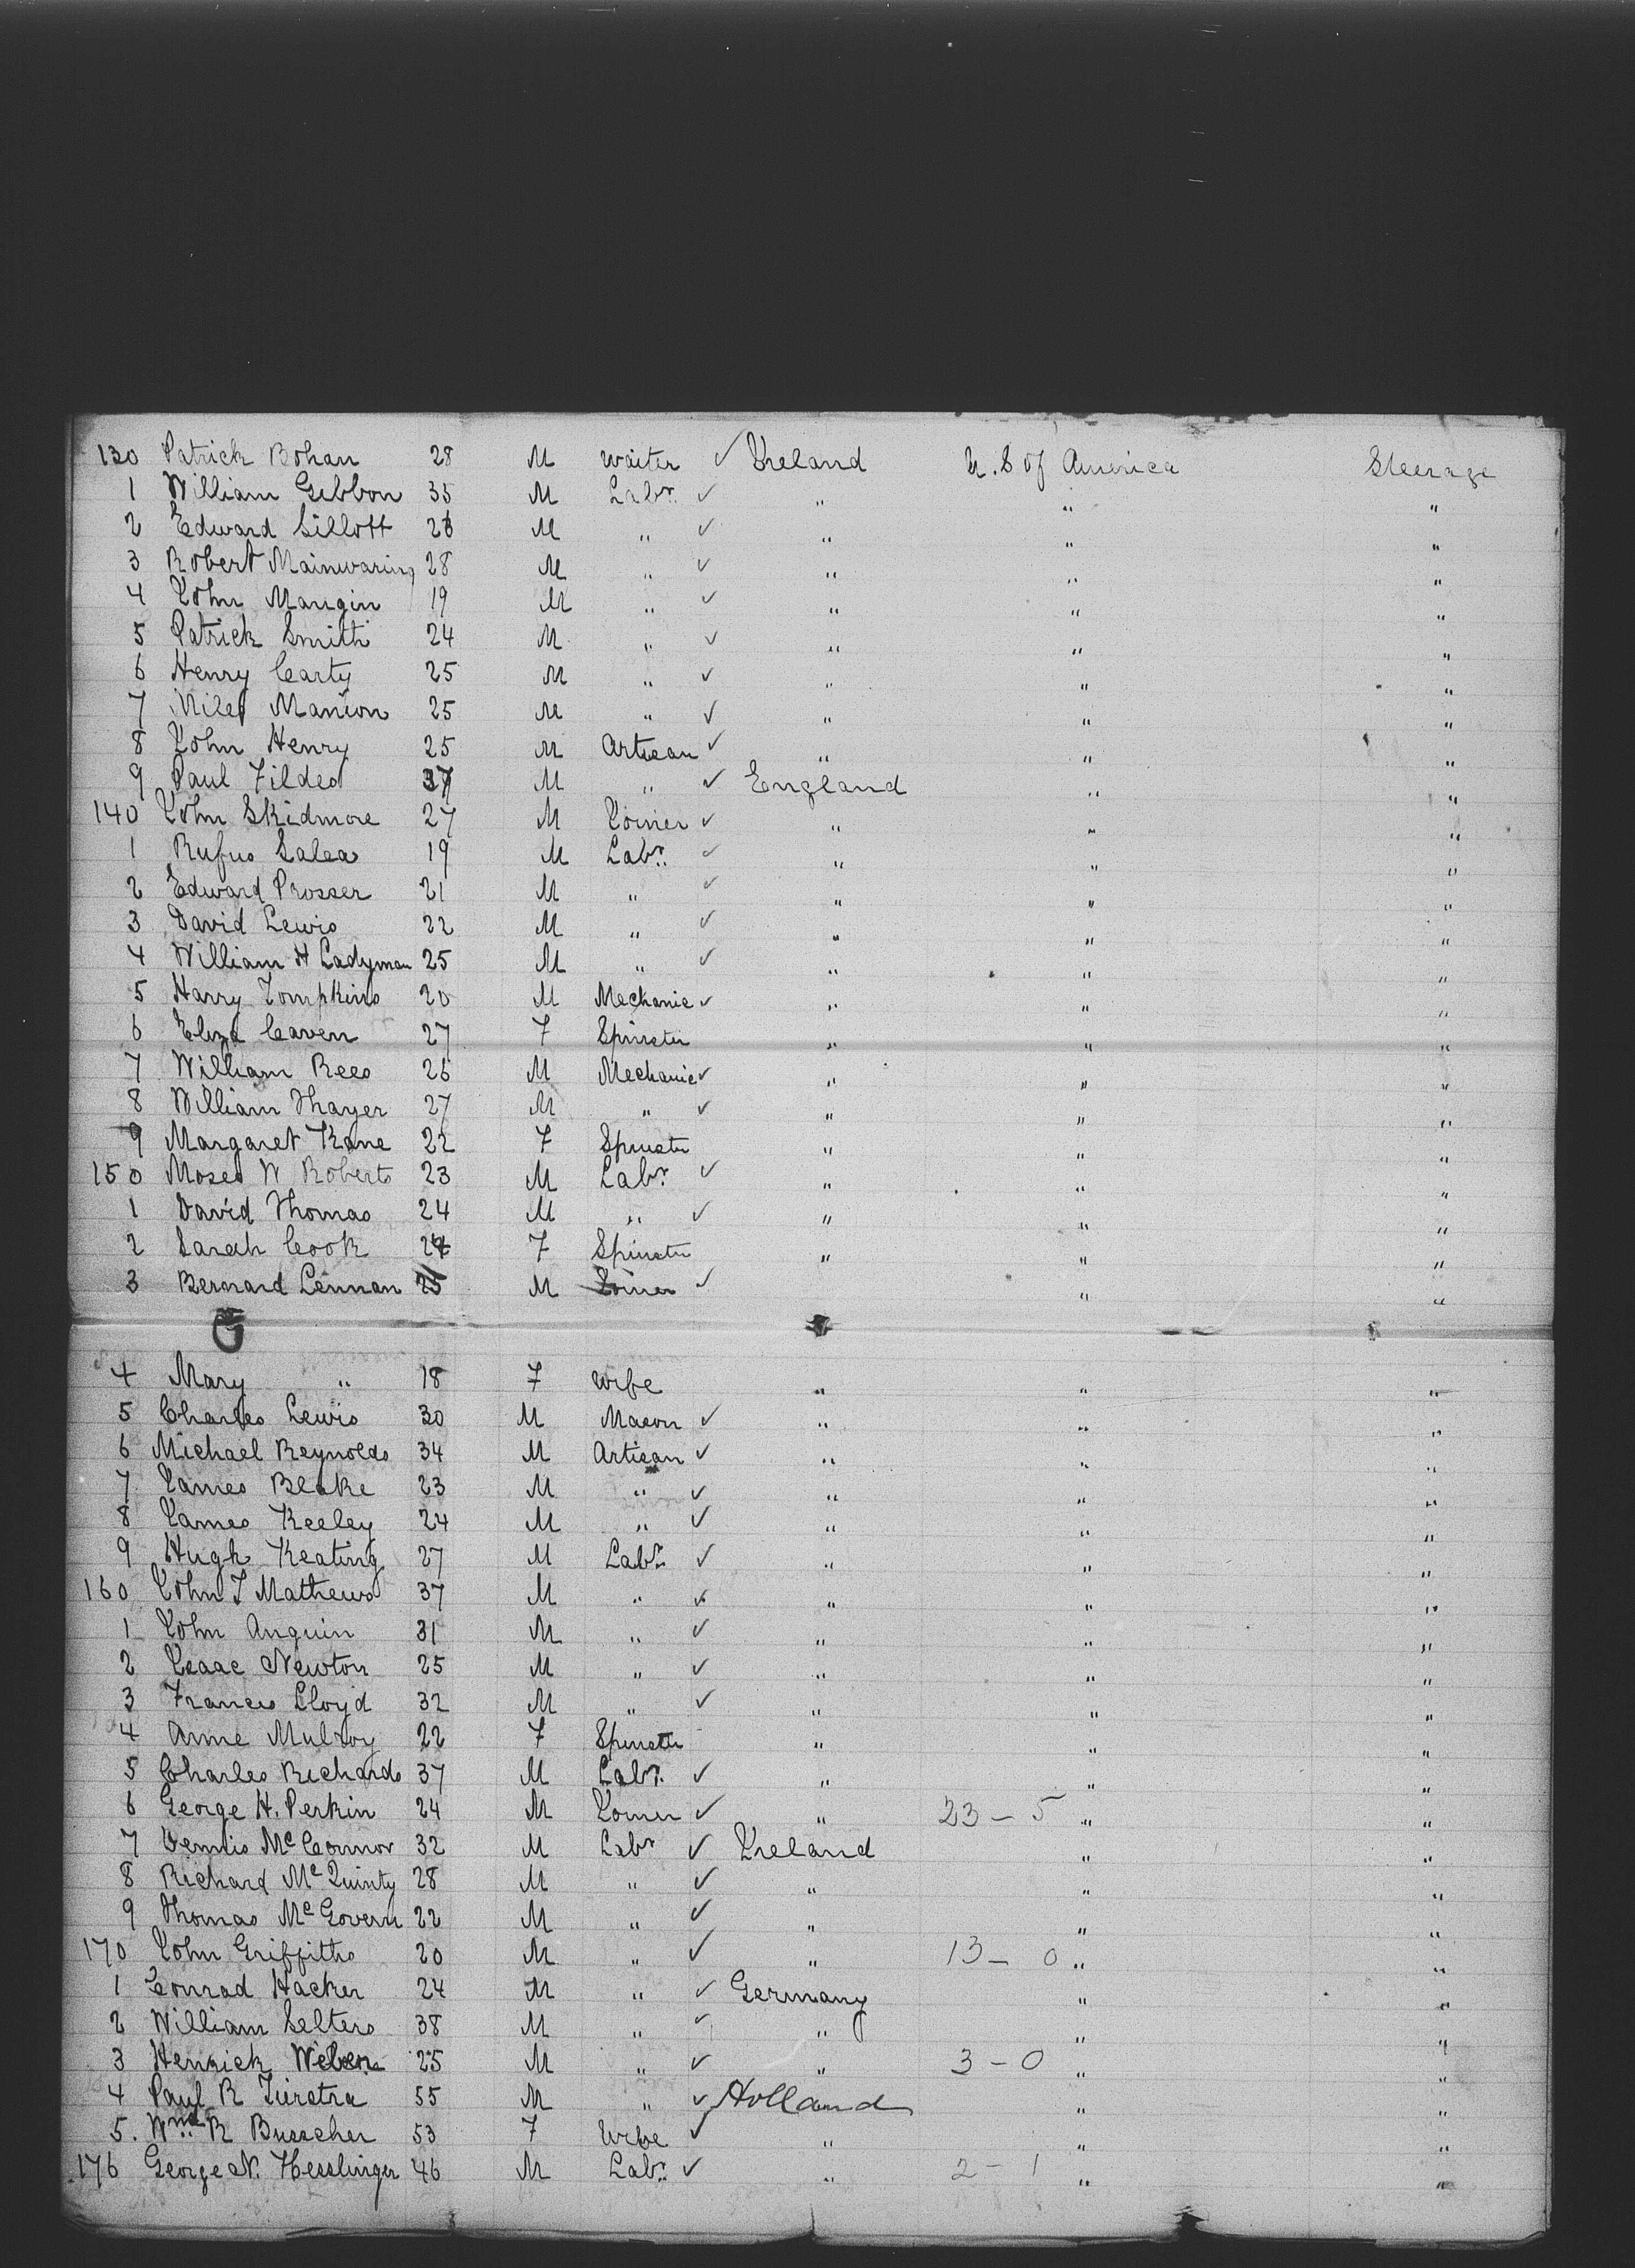 130 Patrick Bohan 28 M Waiter ✓ Ireland U.S of America Steerage
1 William Gibbon 35 M Labr. ✓ " " "
2 Edward Sillott M " ✓ " " "
3 Robert Mainwaring 28 M " ✓ " " "
4 John Mangin 19 M " ✓ " " "
5 Patrick Smith 24 M " ✓ " " "
6 Henry Carty 25 M " ✓ " " "
7 Miles Manion 25 M " ✓ " " "
8 John Henry 25 M Artisan ✓ " " "
9 Paul Fildes 37 M " ✓ England " "
140 John Skidmore 27 M Joiner ✓ " " "
1 Rufus Salea 19 M Labr. ✓ " " "
2 Edward Prosser 21 M " ✓ " " "
3 David Lewis 22 M " ✓ " " "
4 William H Ladyman 25 M " ✓ " " "
5 Harry Tompkins 20 M Mechanic ✓ " " "
6 Eliza Caven 27 F Spinster " " "
7 William Rees 26 M Mechanic ✓ " " "
8 William Thayer 27 M " ✓ " " "
9 Margaret Kane 22 F Spinster " " "
150 Moses W Roberts 23 M Labr. ✓ " " "
1 David Thomas 24 M " ✓ " " "
2 Sarah Cook 24 F Spinster " " "
3 Bernard Lennan 25 M Joiner ✓ " "
4 Mary " 18 F Wife " " "
5 Charles Lewis 30 M Mason ✓ " " "
6 Michael Reynolds 34 M Artisan ✓ " " "
7 James Blake 23 M " ✓ " " "
8 James Keeley 24 M " ✓ " " "
9 Hugh Keating 27 M Labr. ✓ " " "
160 John J Mathews 37 M " ✓ " " "
1 John Anguin 31 M " ✓ " " "
2 Isaac Newton 25 M " ✓ " " "
3 Francis Lloyd 32 M " ✓ " " "
4 Anne Mulroy 22 F Spinster " " "
5 Charles Richards 37 M Labr. ✓ " " "
6 George H. Perkin 24 M Joiner ✓ " 23 - 5 " "
7 Dennis McConnor 32 M Labr ✓ Ireland " "
8 Richard McQuinty 28 M " ✓ " " "
9 Thomas McGovern 22 M " ✓ " " "
170 John Griffiths 20 M " ✓ " 13 - 0 " "
1 Conrad Hacker 24 M " ✓ Germany " "
2 William Selters 38 M " ✓ " " "
3 Henrick Weben 25 M " ✓ " 3 - 0 " "
4 Paul R Tierstra 55 M " ✓ Holland " "
5. R Busscher 53 F Wife ✓ " " "
176 George N. Hesslinger 46 M Labr. ✓ " 2 - 1 " "